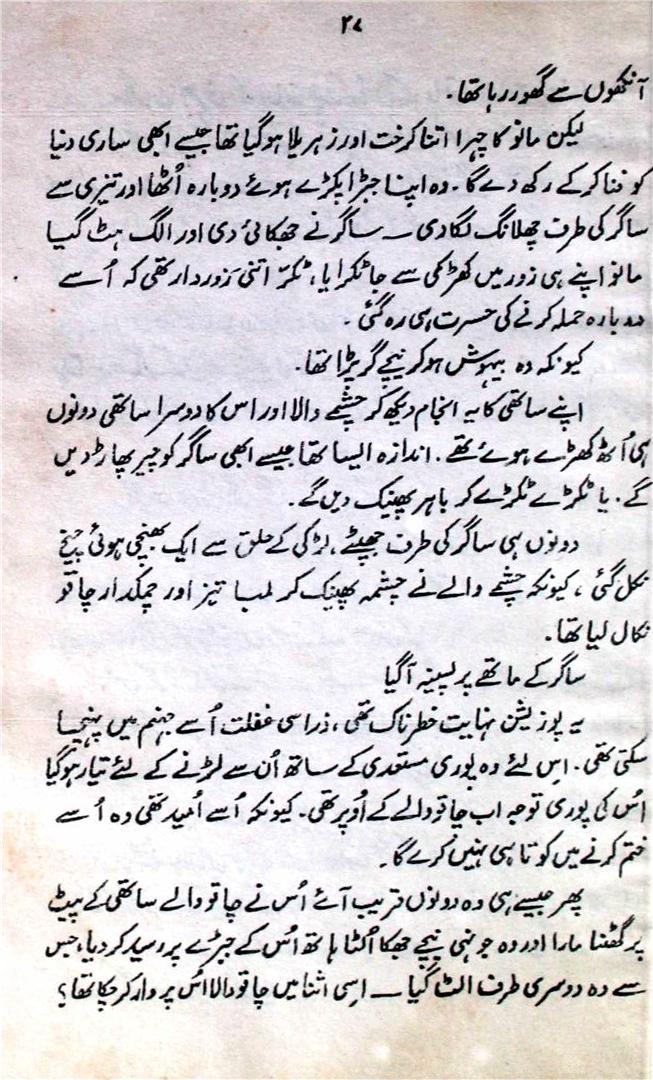 ۲۷
آنکھوں سے گھور رہا تھا۔
لیکن مانو کا چہرا اتنا کرخت اور زہریلا ہوگیا تھا جیسے ابھی ساری دنیا
کو فنا کرکے رکھ دے گا۔ وہ اپنا جبڑا پکڑے ہوئے دوبارہ اُٹھا اور تیزی سے
ساگر کی طرف چھلانگ لگادی ــ ساگر نے جھکائی دی اور الگ ہٹ گیا
مانو اپنے ہی زور میں کھڑکی سے جا ٹکرایا، ٹکّر اتنی زوردار تھی کہ اُسے
دوبارہ حملہ کرنے کی حسرت ہی رہ گئی۔
کیونکہ وہ بیہوش ہوکر نیچے گر پڑا تھا۔
اپنے ساتھی کا یہ انجام دیکھ کر چشمے والا اور اس کا دوسرا ساتھی دونوں
ہی اُٹھ کھڑے ہوئے تھے۔ اندازہ ایسا تھا جیسے ابھی ساگر کو چیر پھاڑ دیں
گے۔ یا ٹکڑے ٹکڑے کر باہر پھینک دیں گے۔
دونوں ہی ساگر کی طرف جھپٹے، لڑکی کے حلق سے ایک بھنچی ہوئی چیخ
نکل گئی، کیونکہ چشمے والے نے چشمہ پھینک کر لمبا تیز اور چمکدار چاقو
نکال لیا تھا۔
ساگر کے ماتھے پر پسینہ آگیا
یہ پوزیشن نہایت خطرناک تھی، ذرا سی غفلت اُسے جہنم میں پہنچا
سکتی تھی۔ اس لئے وہ پوری مستعدی کے ساتھ اُن سے لڑنے کے لئے تیار ہوگیا
اُس کی پوری توجہ اب چاقو والے کے اُوپر تھی۔ کیونکہ اُسے اُمید تھی وہ اُسے
ختم کرنے میں کوتاہی نہیں کرے گا۔
پھر جیسے ہی وہ دونوں قریب آئے اُس نے چاقو والے ساتھی کے پیٹ
پر گھٹنا مارا اور وہ جونہی نیچے جھکا اُلٹا ہاتھ اُس کے جبڑے پر رسید کر دیا، جس
سے وہ دوسری طرف الٹ گیا ــ اسی اثنا میں چاقو والا اُس پر وار کر چکا تھا؟